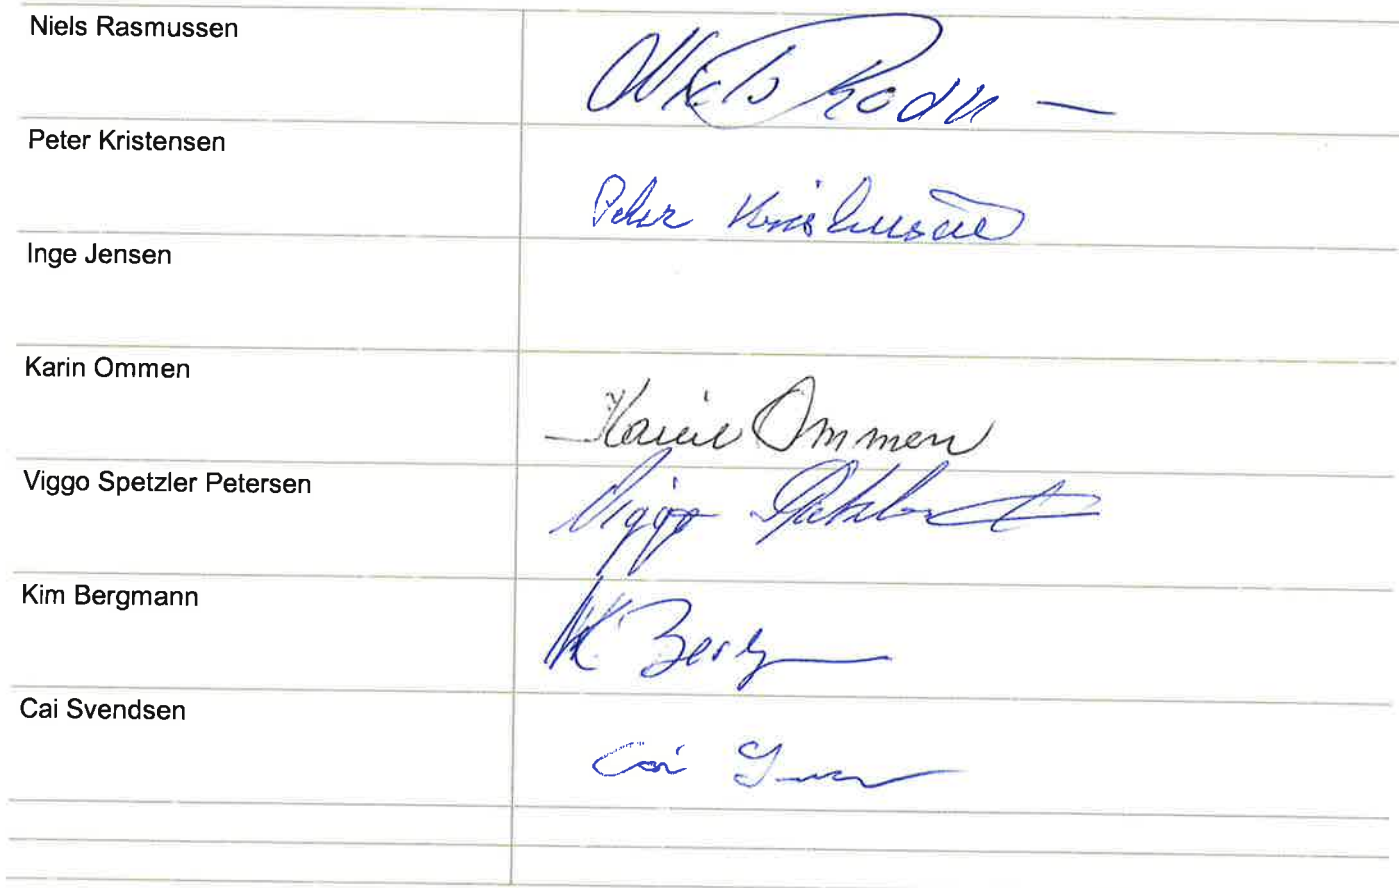 Niels Rasmussen
Niels
Peter Kristensen
Peter Kristensen
Inge Jensen
Karin Ommen
Karin Ommen
Viggo Spetzler Petersen
Viggo
Kim Bergmann
K
Cai Svendsen
Cai